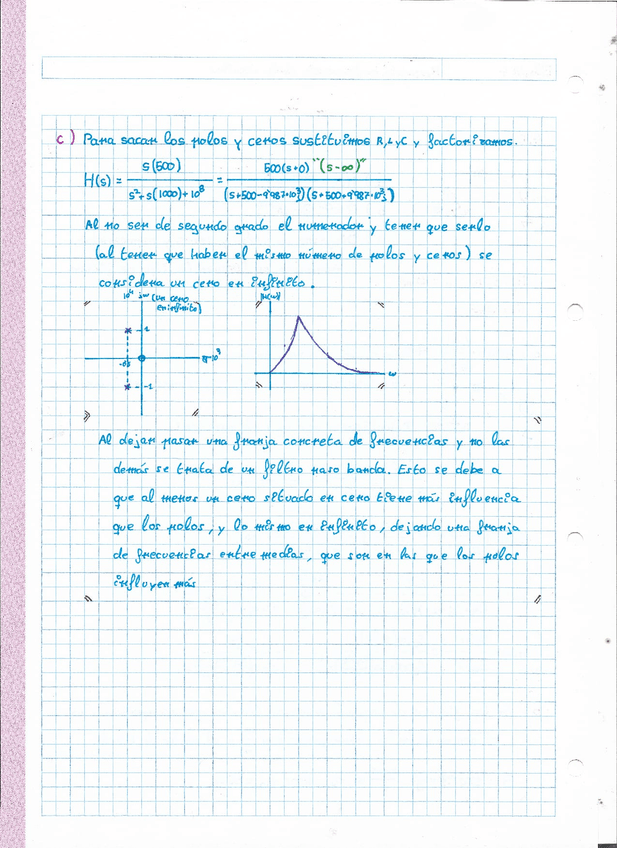 c) Para sacar los polos y ceros sustituimos R, L y C y factorizamos.
H(s) = s(500) / s²+s(1000)+10⁸ = 500(s+0) "(s-∞)" / (s+500-9'987·10³j)(s+500+9'987·10³j)
Al no ser de segundo grado el numerador y tener que serlo
(al tener que haber el mismo número de polos y ceros) se
considera un cero en infinito.
10⁴ jω (un cero
en infinito)
|H(ω)|
1
-0'5
σ·10³
ω
-1
Al dejar pasar una franja concreta de frecuencias y no las
demás se trata de un filtro paso banda. Esto se debe a
que al menos un cero situado en cero tiene más influencia
que los polos, y lo mismo en infinito, dejando una franja
de frecuencias entre medias, que son en las que los polos
influyen más